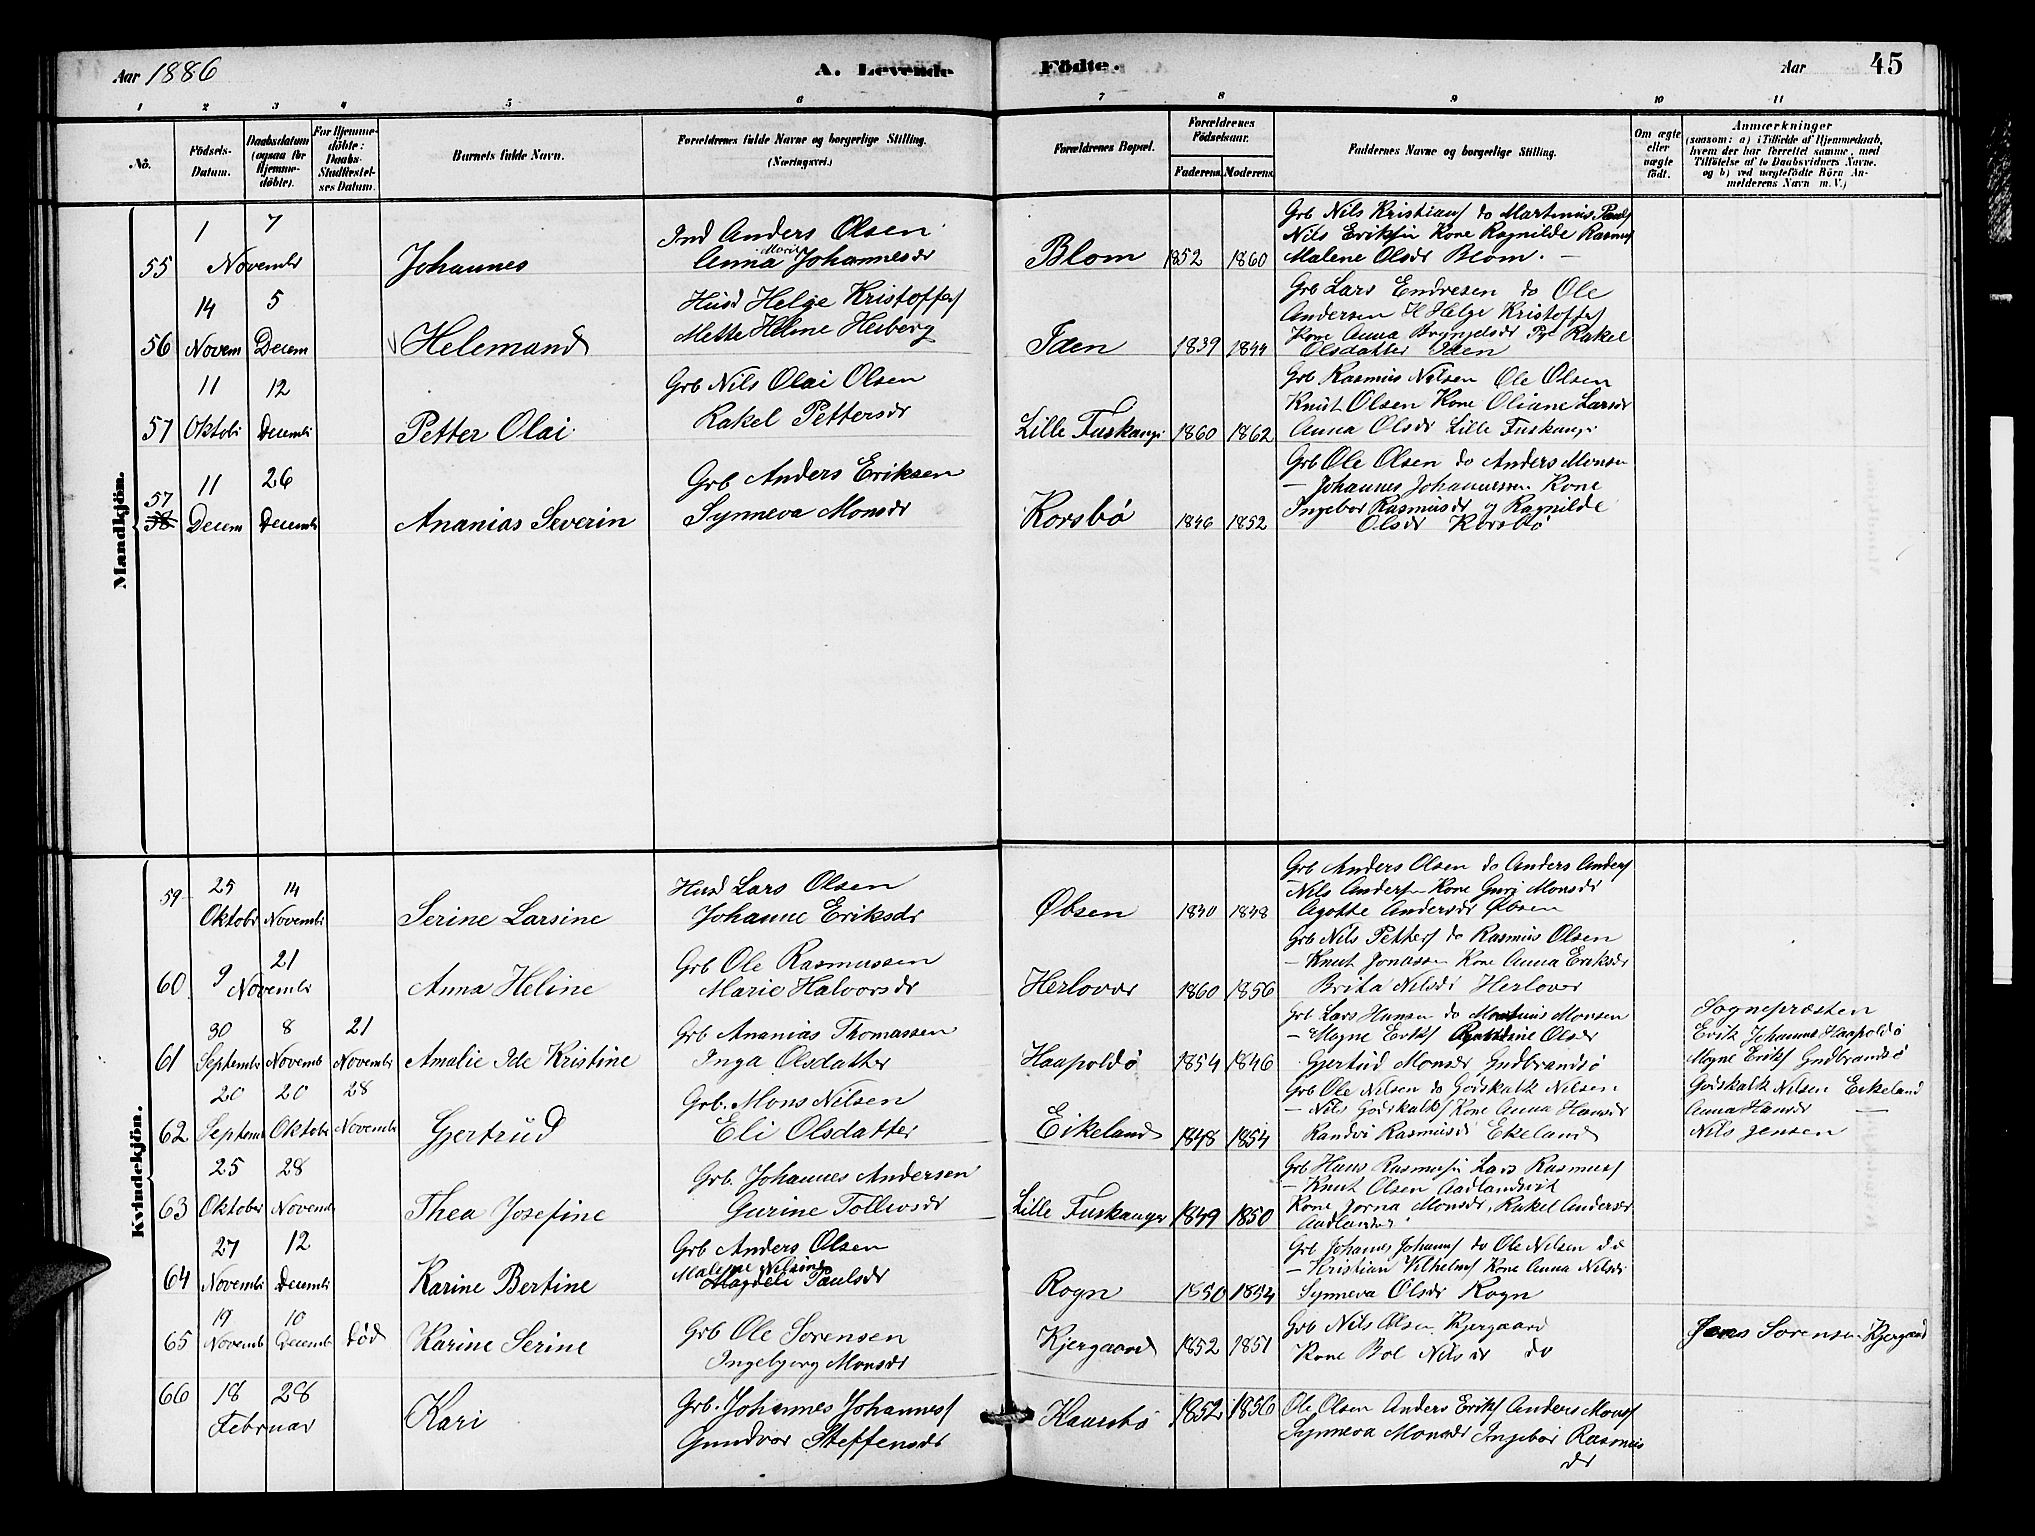 Aar 1886
A. Levende Födte.
Aar
45
1 2 3 4 5 6 7 8 9 10 11
No.
Födsels-
Datum.
Daabsdatum
(ogsaa for
Hjemme-
döbte).
For Hjemme-
döbte:
Daabs-
Stadfæstel-
ses Datum.
Barnets fulde Navn.
Forældrenes fulde Navne og borgerlige Stilling.
(Næringsvei.)
Forældrenes Bopæl.
Forældrenes
Födselsaar.
Faderens. Moderens.
Faddernes Navne og borgerlige Stilling.
Om ægte
eller
uægte
født.
Anmærkninger
(saasom: a) i Tilfælde af Hjemmedaab,
hvem der har forrettet samme, med
Tilföielse af to Daabsvidners Navne.
og b) ved uægtefödte Börn An-
melderens Navn m. V.)
Mandkjön.
55
1 7
Novembr
Johannes
Ind Anders Olsen
Anna Marie Johannesdr
Blom
1852 1860
Grb Nils Kristians do Martinus Pauls
Nils Eriksen Kone Ragnilde Rasmus
Malene Olsdr Blom. —
56
14 5
Novem Decem
Helemand
Husd Helge Kristoffers
Mette Heline Hesberg
Iden
1839 1844
Grb Lars Endresen do Ole
Andersen H Helge Kristoffers
Kone Anna Pige Rakel
Olsdatter Iden
57
11 12
Oktobr Decembr
Petter Olai
Grb Nils Olai Olsen
Rakel Pettersdr
Lille Fuskangr
1860 1862
Grb Rasmus Nilsen Ole Olsen
Knut Olsen Kone Oliane Larsdr
Anna Olsdr Lille Fuskangr
57
58
11 26
Decem Decembr
Ananias Severin
Grb Anders Eriksen
Synneva Monsdr
Korsbö
1846 1852
Grb Ole Olsen do Anders Monsen
— Johannes Johannessen Kone
Ingebor Rasmusdr og Ragnilde
Olsdr Korsbö
Kvindekjön.
59
25 14
Oktobr Novembr
Serine Larsine
Husd Lars Olsen
Johanne Eriksdr
Øbsen
1840 1848
Grb Anders Olsen do Anders Anders
— Nils Andersen Kone Guri Monsdr
Agotte Andersdr Øbsen
60
9 21
Novembr
Anna Heline
Grb Ole Rasmussen
Marie Halvorsdr
Herlover
1860 1856
Grb Nils Petters do Rasmus Olsen
— Knut Jonassen Kone Anna Eriksdr
Brita Nilsdr Herlover
61
30 8 21
Septembr Novemb Novembr
Amalie Ide Kristine
Grb Ananias Thomassen
Inga Olsdatter
Haapoldö
1854 1846
Grb Lars Hansen do Martinus Monsen
— Mogne Eriks Olsdr
Gjertud Monsdr Gudbrandsö
Sognepræsten
Erik Johannes Haapoldö
Mogne Eriks Gudbrandsö
62
20 20 28
Septemb Oktobr Novembr
Gjertrud
Grb. Mons Nilsen
Eli Olsdatter
Eikeland
1848 1854
Grb Ole Nilsen do Godskalk Nilsen
— Nils Godskalks Kone Anna Hansdr
Randvi Rasmusdr Ekeland
Godskalk Nilsen Eikeland
Anna Hansdr —
Nils Jensen
63
25 28
Oktober Novembr
Thea Josefine
Grb. Johannes Andersen
Gurine Tollevsdr
Lille Fuskanger
1849 1850
Grb Hans Rasmusen Lars Rasmuss
— Knut Olsen Aadlandsvik
Kone Jorna Monsdr, Rakel Andersdr
Aadlandsv
64
27 12
Novembr Decembr
Karine Bertine
Grb Anders Olsen
Malene Nilsine
Magdeli Paulsdr
Rogn
1850 1854
Grb Johans Johanns do Ole Nilsen do
— Kristian Vilhelms Kone Anna Nilsdr
Synneva Olsdr Rogn
65
19 10
Novembr Decembr død
Karine Serine
Grb Ole Sorensen
Ingebjorg Monsdr
Kjergaard
1852 1851
Grb Nils Olsen Kjergaard
Kone Bol Nilsdr do
Jens Sorensen Kjergaard
66
18 28
Februar
Kari
Grb. Johannes Johanness
Gundvor Steffensdr
Kaursbö
1852 1856
Ole Olsen Anders Eriks Anders Mons
Synneva Monsdr Ingebor Rasmus
dr